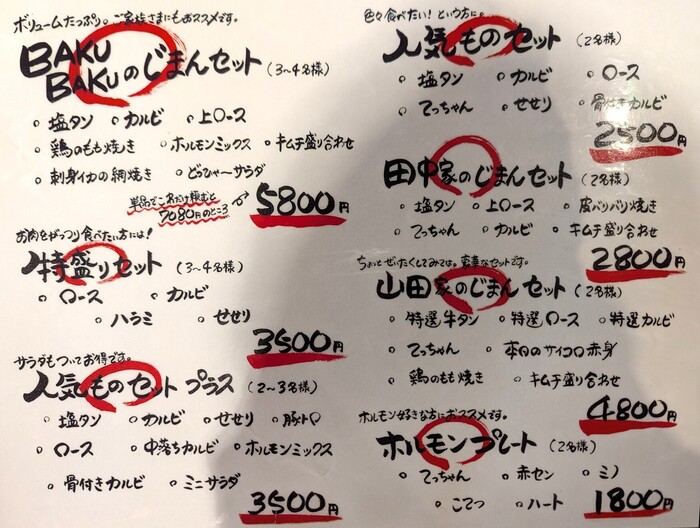 ボリュームたっぷり。ご家族さまにもおススメです。
BAKU
BAKUのじまんセット (3~4名様)
。塩タン 。カルビ 。上ロース
。鶏のもも焼き 。ホルモンミックス 。キムチ盛り合わせ
。刺身イカの網焼き 。どひゃーサラダ
単品でこれだけ頼むと
7080円のところ
5800円
お肉をがっつり食べたい方には!
特盛りセット (3~4名様)
。ロース 。カルビ
。ハラミ 。せせり
3500円
サラダもついてお得です。
人気ものセット プラス (2~3名様)
。塩タン 。カルビ 。せせり 。豚トロ
。ロース 。中落ちカルビ 。ホルモンミックス
。骨付きカルビ 。ミニサラダ
3500円
色々食べたい!という方に。
人気ものセット (2名様)
。塩タン 。カルビ 。ロース
。てっちゃん 。せせり 。骨付きカルビ
2500円
田中家のじまんセット (2名様)
。塩タン 。上ロース 。皮パリパリ焼き
。てっちゃん 。カルビ 。キムチ盛り合わせ
2800円
ちょっとぜいたくしてみては。豪華なセットです。
山田家のじまんセット (2名様)
。特選牛タン 。特選ロース 。特選カルビ
。てっちゃん 。本日のサイコロ赤身
。鶏のもも焼き 。キムチ盛り合わせ
4800円
ホルモン好きな方におススメです。
ホルモンプレート (2名様)
。てっちゃん 。赤セン 。ミノ
。こてつ 。ハート
1800円